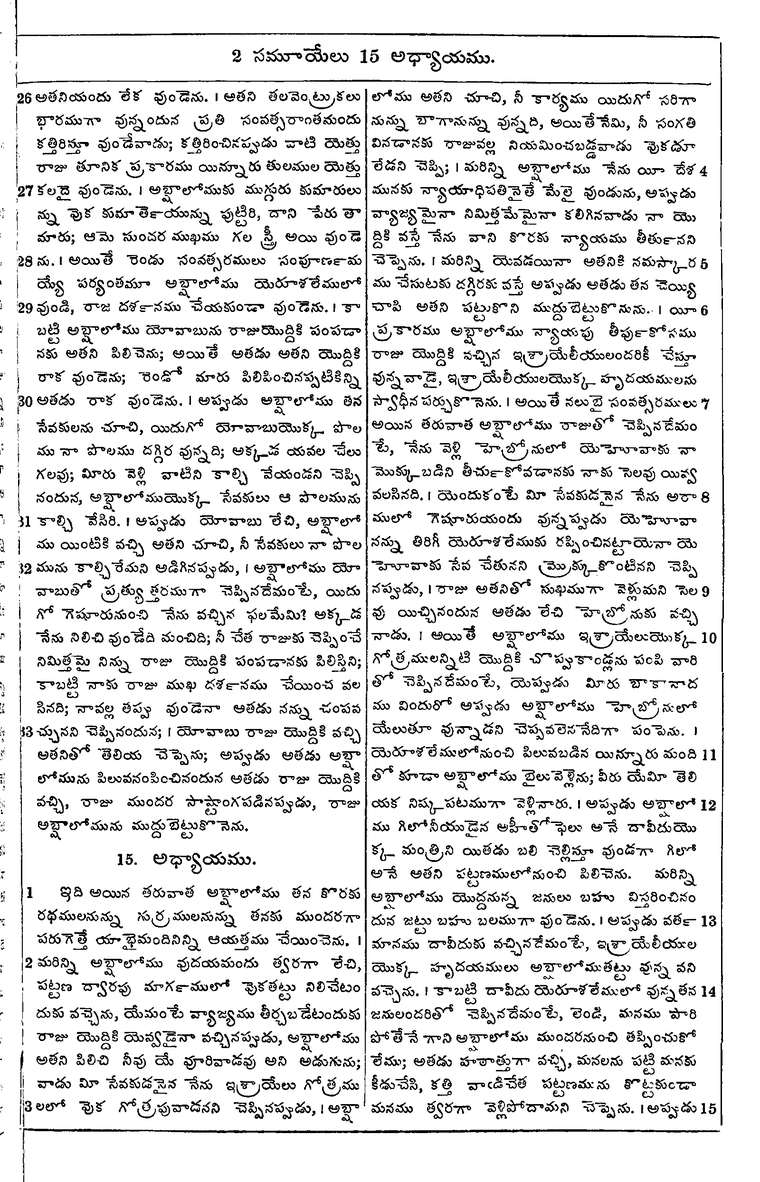 2 సమూయేలు 15 అధ్యాయము.
26 అతనియందు లేక వుండెను. । అతని తలవెంట్రుకలు
భారముగా వున్నందున ప్రతి సంవత్సరాంతమందు
కత్తిరిస్తూ వుండేవాడు; కత్తిరించినప్పుడు వాటి యెత్తు
రాజు తూనిక ప్రకారము యిన్నూరు తులముల యెత్తు
27 కలదై వుండెను. । అబ్షాలోముకు ముగ్గురు కుమారులు
న్ను వొక కుమార్తెయున్ను పుట్టిరి, దాని పేరు తా
మారు; ఆమె సుందర ముఖము గల స్త్రీ అయి వుండె
28 ను. । అయితే రెండు సంవత్సరములు సంపూర్ణమ
య్యే పర్యంతమూ అబ్షాలోము యెరూశలేములో
29 వుండి, రాజ దర్శనము చేయకుండా వుండెను. । కా
బట్టి అబ్షాలోము యోవాబును రాజుయొద్దికి పంపడా
నకు అతని పిలిచెను; అయితే అతడు అతని యొద్దికి
రాక వుండెను; రెండో మారు పిలిపించినప్పటికిన్ని
30 అతడు రాక వుండెను. । అప్పుడు అబ్షాలోము తన
సేవకులను చూచి, యిదుగో యోవాబుయొక్క పొల
ము నా పొలము దగ్గిర వున్నది; అక్కడ యవల చేలు
గలవు; మీరు వెళ్లి వాటిని కాల్చి వేయండని చెప్పి
నందున, అబ్షాలోముయొక్క సేవకులు ఆ పొలమును
31 కాల్చి వేసిరి. । అప్పుడు యోవాబు లేచి, అబ్షాలో
ము యింటికి వచ్చి అతని చూచి, నీ సేవకులు నా పొల
32 మును కాల్చిరేమని అడిగినప్పుడు, । అబ్షాలోము యో
వాబుతో ప్రత్యుత్తరముగా చెప్పినదేమంటే, యిదు
గో గెషూరునుంచి నేను వచ్చిన ఫలమేమి? అక్కడ
నేను నిలిచి వుండేది మంచిది; నీ చేత రాజుకు చెప్పించే
నిమిత్తమై నిన్ను రాజు యొద్దికి పంపడానకు పిలిస్తిని;
కాబట్టి నాకు రాజు ముఖ దర్శనము చేయించ వల
సినది; నావల్ల తప్పు వుండెనా ఆతడు నన్ను చంపవ
33 చ్చునని చెప్పినందున; । యోవాబు రాజు యొద్దికి వచ్చి
అతనితో తెలియ చెప్పెను; అప్పుడు అతడు అబ్షా
లోమును పిలువనంపించినందున అతడు రాజు యొద్దికి
వచ్చి, రాజు ముందర సాష్టాంగపడినప్పుడు, రాజు
అబ్షాలోమును ముద్దుబెట్టుకొనెను.
15. అధ్యాయము.
1 ఇది అయిన తరువాత అబ్షాలోము తన కొరకు
రథములనున్ను గుర్రములనున్ను తనకు ముందరగా
పరుగెత్తే యాభైమందినిన్ని ఆయత్తము చేయించెను. ।
2 మరిన్ని అబ్షాలోము వుదయమందు త్వరగా లేచి,
పట్టణ ద్వారపు మార్గములో వొకతట్టు నిలిచేటం
దుకు వచ్చెను, యేమంటే వ్యాజ్యము తీర్చబడేటందుకు
రాజు యొద్దికి యెవ్వడైనా వచ్చినప్పుడు, అబ్షాలోము
అతని పిలిచి నీవు యే వూరివాడవు అని అడుగును;
వాడు మీ సేవకుడనైన నేను ఇశ్రాయేలు గోత్రము
3 లలో వొక గోత్రపువాడనని చెప్పినప్పుడు, । అబ్షా
లోము అతని చూచి, నీ కార్యము యిదుగో సరిగా
నున్ను బాగానున్ను వున్నది, అయితేనేమి, నీ సంగతి
వినడానకు రాజువల్ల నియమించబడ్డవాడు వొకడూ
లేడని చెప్పి; । మరిన్ని అబ్షాలోము నేను యీ దేశ 4
మునకు న్యాయాధిపతినైతే మేలై వుండును, అప్పుడు
వ్యాజ్యమైనా నిమిత్తమేమైనా కలిగినవాడు నా యొ
ద్దికి వస్తే నేను వాని కొరకు న్యాయము తీర్తునని
చెప్పెను. । మరిన్ని యెవడయినా అతనికి నమస్కార 5
ము చేసుటకు దగ్గిరకు వస్తే అప్పుడు అతడు తన చెయ్యి
చాపి అతని పట్టుకొని ముద్దుబెట్టుకొనును. । యీ 6
ప్రకారము అబ్షాలోము న్యాయపు తీర్పుకోసము
రాజు యొద్దికి వచ్చిన ఇశ్రాయేలీయులందరికీ చేస్తూ
వున్నవాడై, ఇశ్రాయేలీయులయొక్క హృదయములను
స్వాధీన పర్చుకొనెను. । అయితే నలుబై సంవత్సరములు 7
అయిన తరువాత అబ్షాలోము రాజుతో చెప్పినదేమం
టే, నేను వెళ్లి హెబ్రోనులో యెహోవాకు నా
మొక్కుబడిని తీర్చుకోవడానకు నాకు సెలవు యివ్వ
వలసినది. । యెందుకంటే మీ సేవకుడనైన నేను అరా 8
ములో గెషూరుయందు వున్నప్పుడు యెహోవా
నన్ను తిరిగీ యెరూశలేముకు రప్పించినట్టాయెనా యె
హోవాకు సేవ చేతునని మ్రొక్కుకొంటినని చెప్పి
నప్పుడు, । రాజు అతనితో సుఖముగా వెళ్లుమని సెల 9
వు యిచ్చినందున అతడు లేచి హెబ్రోనుకు వచ్చి
నాడు. । అయితే అబ్షాలోము ఇశ్రాయేలుయొక్క 10
గోత్రములన్నిటి యొద్దికి చొప్పకాండ్లను పంపి వారి
తో చెప్పినదేమంటే, యెప్పుడు మీరు బాకానాద
ము విందురో అప్పుడు అబ్షాలోము హెబ్రోనులో
యేలుతూ వున్నాడని చెప్పవలెననేదిగా పంపెను. ।
యెరూశలేములోనుంచి పిలువబడిన యిన్నూరు మంది 11
తో కూడా అబ్షాలోము బైలువెళ్లెను; వీరు యేమీ తెలి
యక నిష్కపటముగా వెళ్లినారు. । అప్పుడు అబ్షాలో 12
ము గిలోనీయుడైన అహీతోఫెలు అనే దావీదుయొ
క్క మంత్రిని యితడు బలి చెల్లిస్తూ వుండగా గిలో
అనే అతని పట్టణములోనుంచి పిలిచెను. మరిన్ని
అబ్షాలోము యొద్దనున్న జనులు బహు విస్తరించినం
దున జట్టు బహు బలముగా వుండెను. । అప్పుడు వర్త 13
మానము దావీదుకు వచ్చినదేమంటే, ఇశ్రాయేలీయుల
యొక్క హృదయములు అబ్షాలోముతట్టు వున్నవని
వచ్చెను. । కాబట్టి దావీదు యెరూశలేములో వున్న తన 14
జనులందరితో చెప్పినదేమంటే, లెండి, మనము పారి
పోతేనే గాని అబ్షాలోము ముందరనుంచి తప్పించుకో
లేము; అతడు హఠాత్తుగా వచ్చి, మనలను పట్టి మనకు
కీడుచేసి, కత్తి వాడిచేత పట్టణమును కొట్టకుండా
మనము త్వరగా వెళ్లిపోదామని చెప్పెను. । అప్పుడు 15